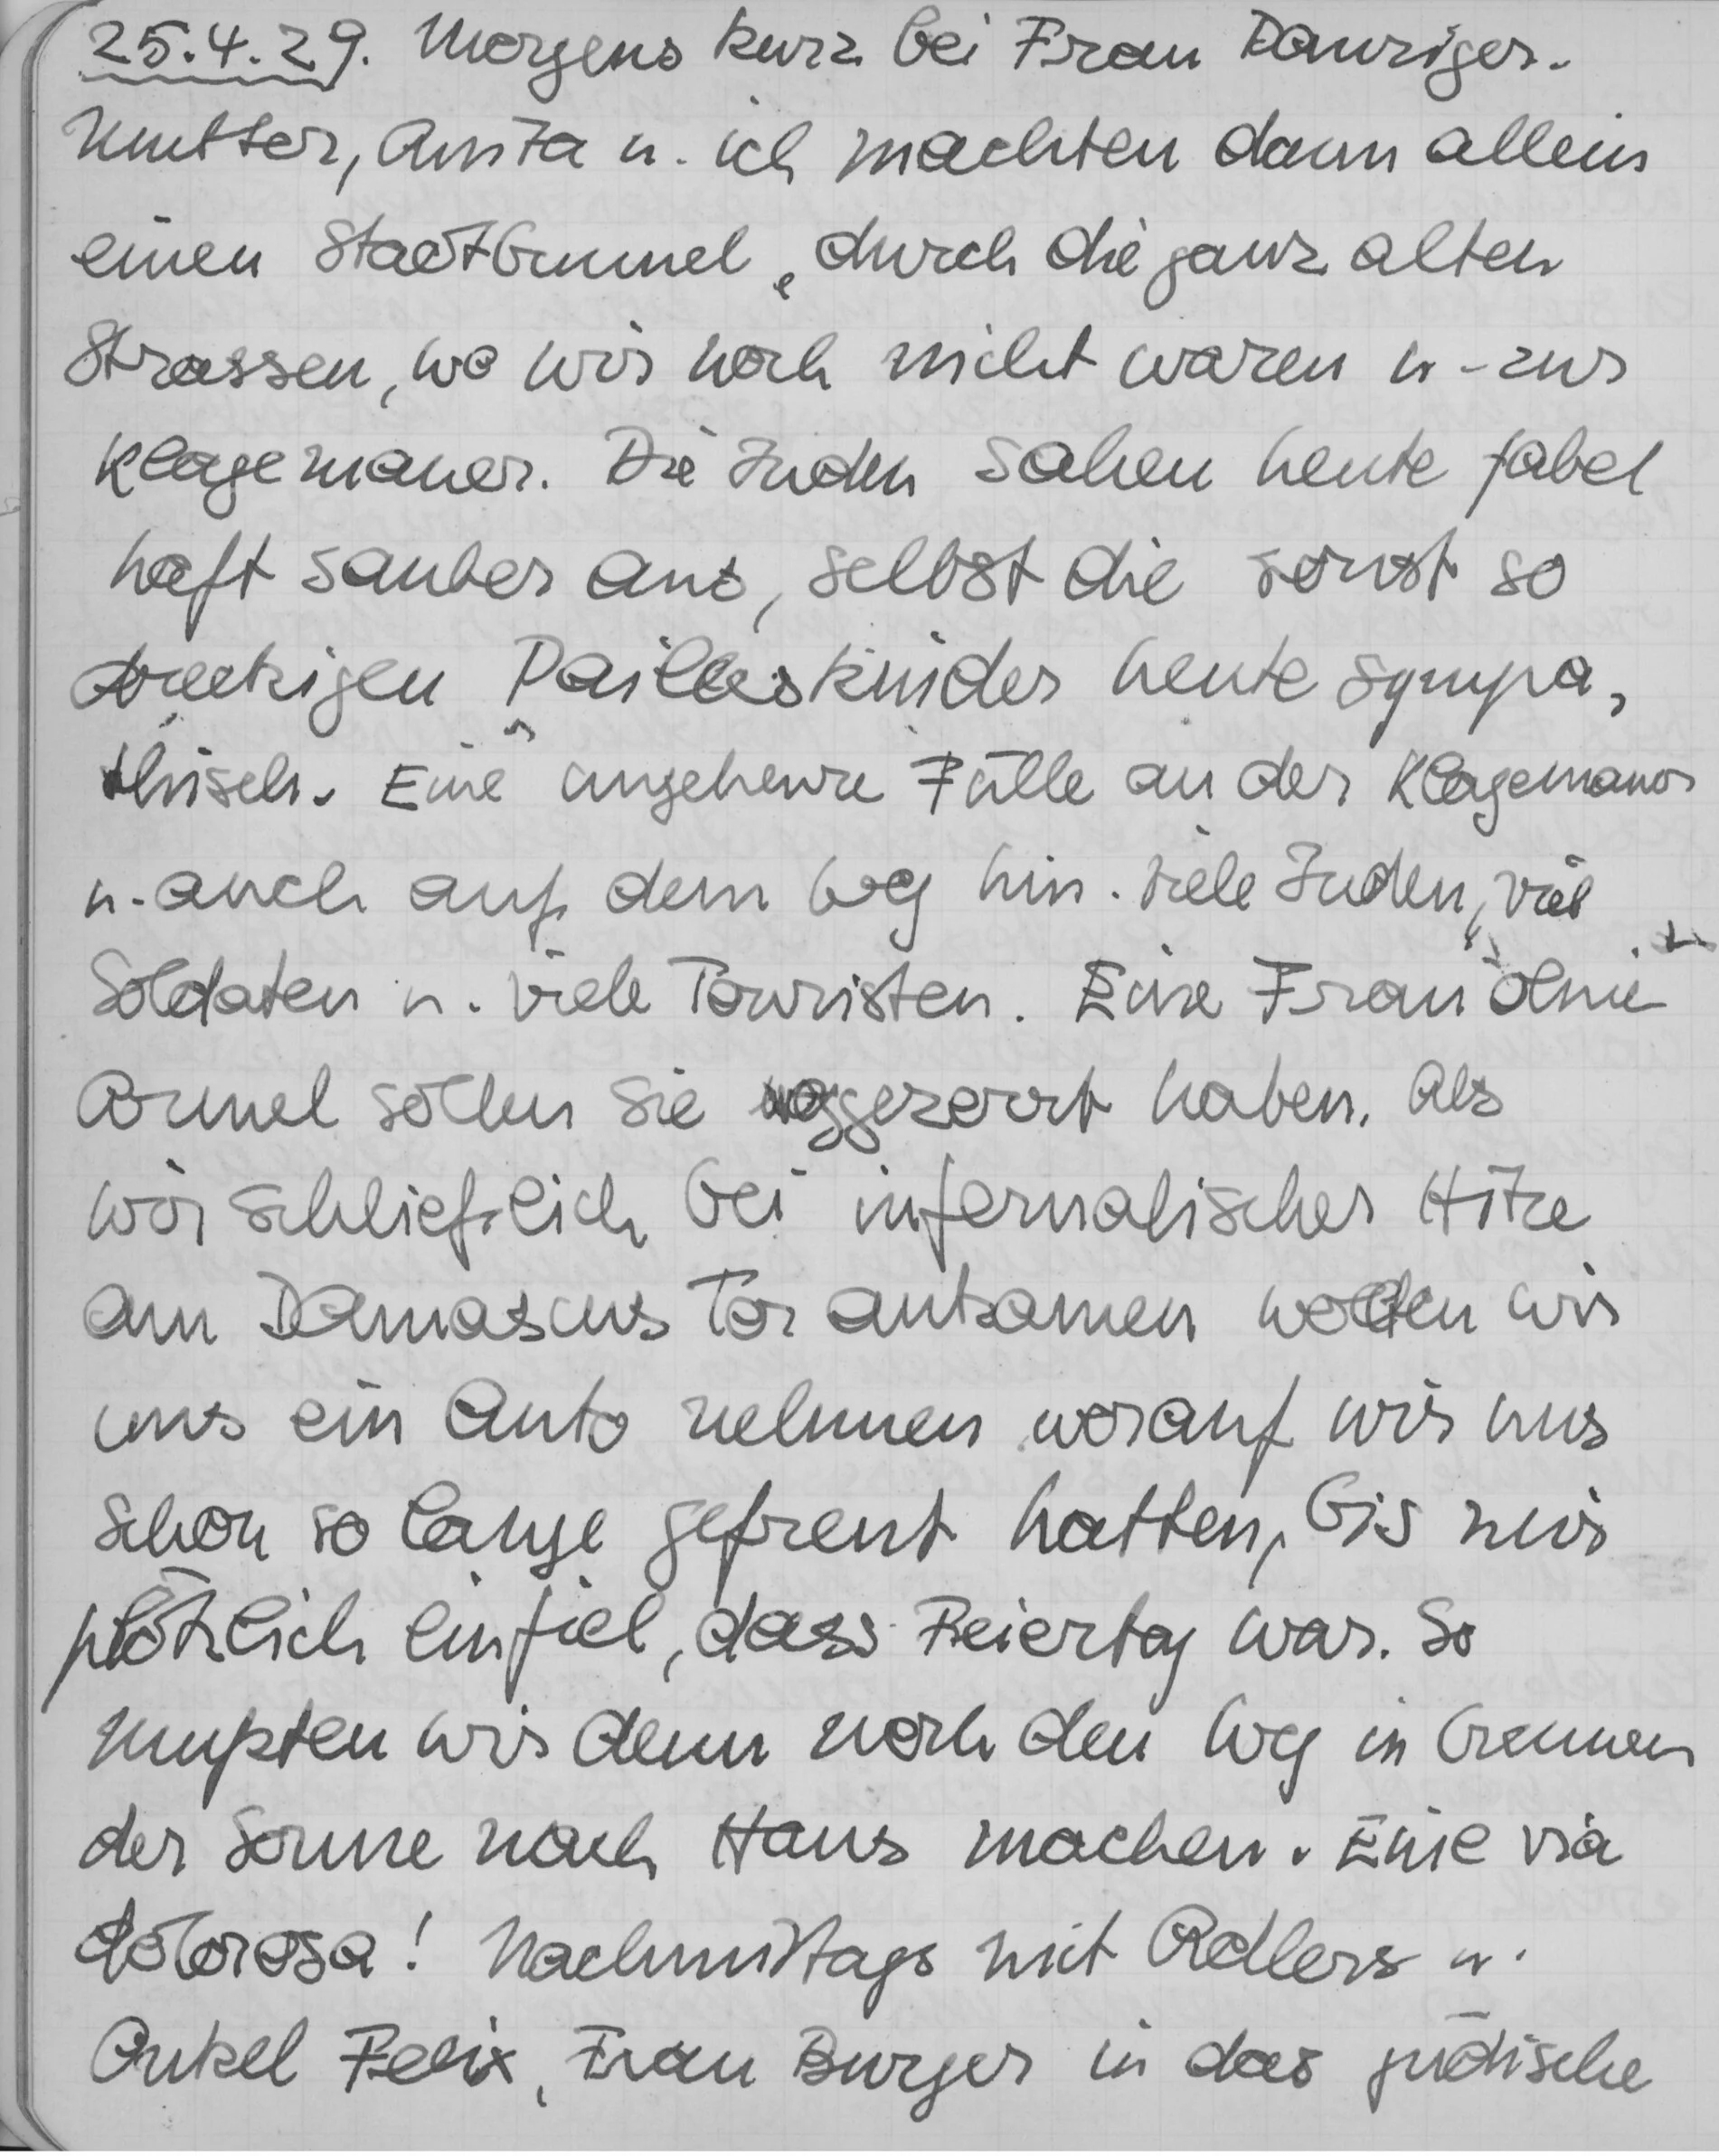 25.4.29. Morgens kurz bei Frau Danziger.
Mutter, Anita u. ich machten dann allein
einen Stadtbummel, durch die ganz alten
Strassen, wo wir noch nicht waren u - zur
Klagemauer. Die Juden sahen heute fabel
haft sauber aus, selbst die sonst so
dreckigen Pailleskinder heute sympa,
thisch. Eine ungeheure Fülle an der Klagemauer
u. auch auf dem Weg hin. Viele Juden, viel
Soldaten u. viele Touristen. Eine Frau ohne
Ärmel sollen sie weggezerrt haben. Als
wir schließlich bei infernalischer Hitze
am Damascus Tor ankamen wollten wir
uns ein Auto nehmen worauf wir uns
schon so lange gefreut hatten, bis mir
plötzlich einfiel, dass Feiertag war. So
mußten wir denn noch den Weg in brennen
der Sonne nach Haus machen. Eine via
dolorosa! Nachmittags mit Adlers u.
Onkel Felix, Frau Burger in das jüdische